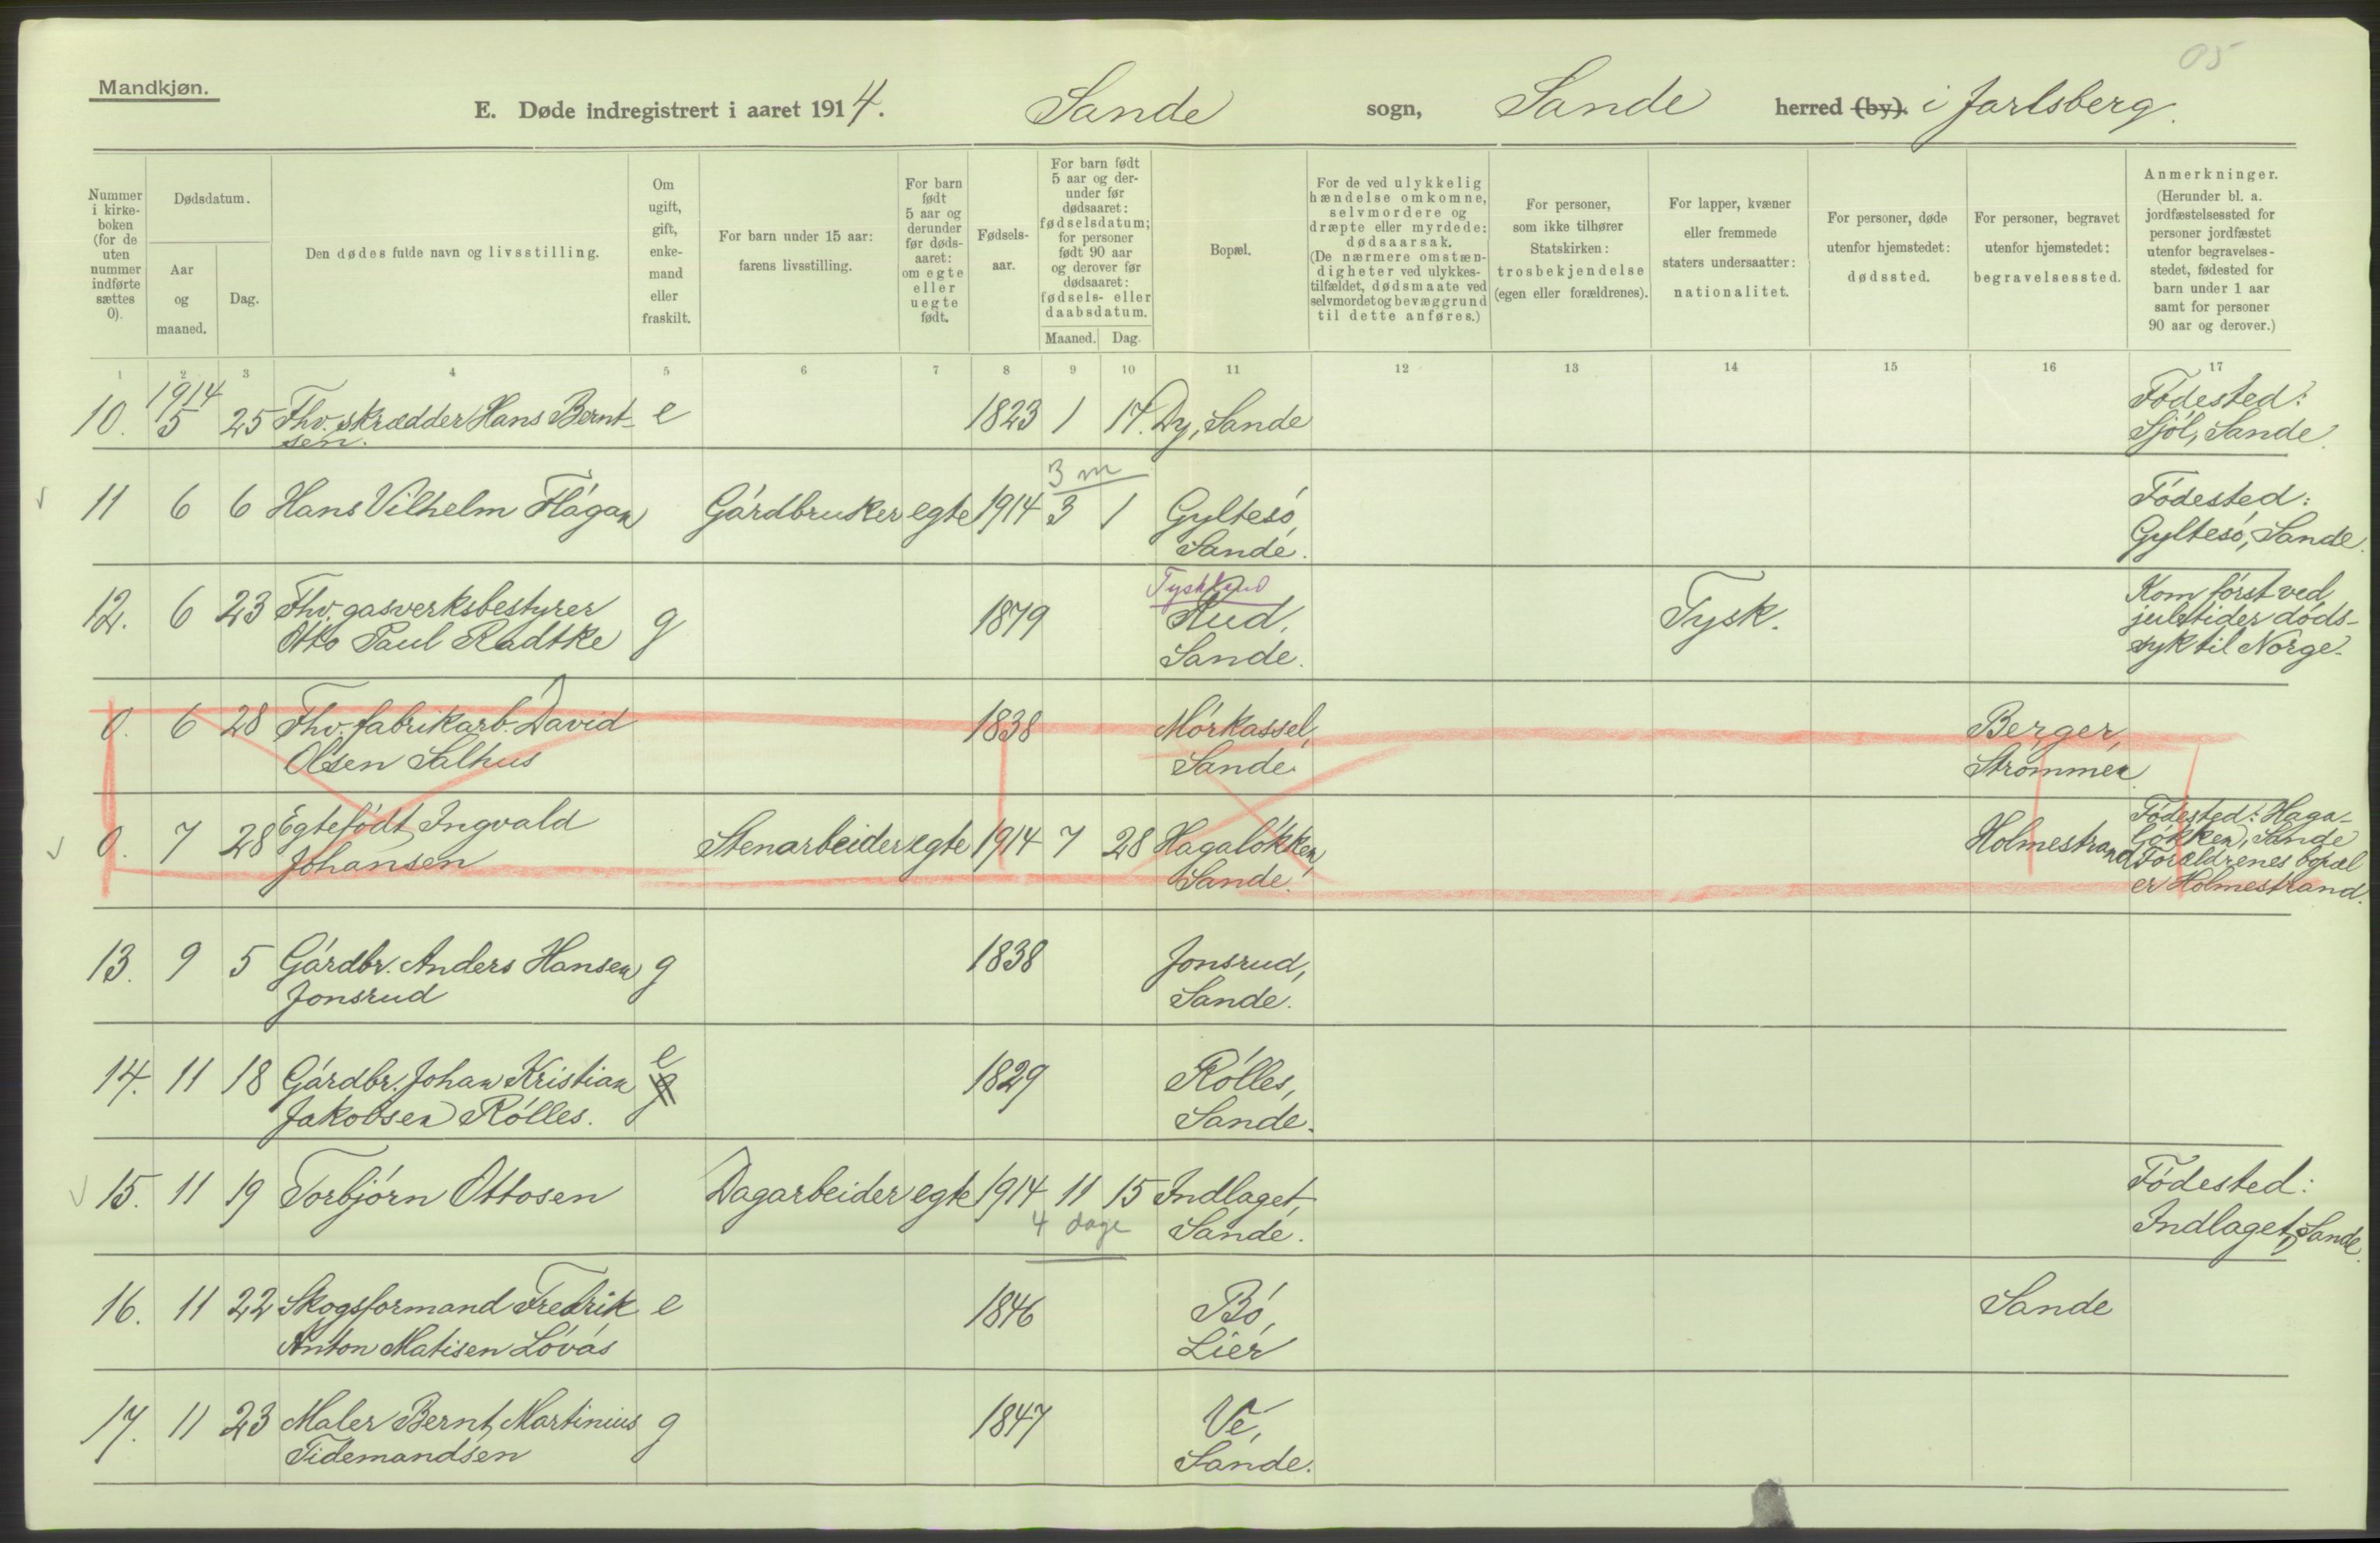 05
Mandkjøn.
E. Døde indregistrert i aaret 1914. Sande sogn, Sande herred (by). i Jarlsberg.
Nummer i kirke-boken (for de uten nummer indførte sættes 0).
Dødsdatum.
Aar og maaned.
Dag.
Den dødes fulde navn og livsstilling.
Om ugift, gift, enke-mand eller fraskilt.
For barn under 15 aar: farens livsstilling.
For barn født 5 aar og derunder før døds-aaret: om egte eller uegte født.
Fødsels-aar.
For barn født 5 aar og der-under før dødsaaret: fødselsdatum; for personer født 90 aar og derover før dødsaaret: fødsels- eller daabsdatum.
Maaned. Dag.
Bopæl.
For de ved ulykkelig hændelse omkomne, selvmordere og dræpte eller myrdede: dødsaarsak. (De nærmere omstæn-digheter ved ulykkes-tilfældet, dødsmaate ved selvmordet og bevæggrund til dette anføres.)
For personer, som ikke tilhører Statskirken: trosbekjendelse (egen eller forældrenes).
For lapper, kvæner eller fremmede staters undersaatter: nationalitet.
For personer, døde utenfor hjemstedet: dødssted.
For personer, begravet utenfor hjemstedet: begravelsessted.
Anmerkninger. (Herunder bl. a. jordfæstelsessted for personer jordfæstet utenfor begravelses-stedet, fødested for barn under 1 aar samt for personer 90 aar og derover.)
1 2 3 4 5 6 7 8 9 10 11 12 13 14 15 16 17
1914
10. 5 25 Fhv. skrædder Hans Bernt- e 1823 1 17. Dy, Sande Fødested:
sen. Sjøl, Sande.
3 m
11 6 6 Hans Vilhelm Hågan Gårdbruker egte 1914 3 1 Gyltesø, Fødested:
Sande. Gyltesø, Sande.
Tyskland
12. 6 23 Fhv. gasverksbestyrer g 1879 Rud, Tysk. Kom først ved
Otto Paul Radtke Sande. juletider døds-
syk til Norge.
0. 6 28 Fhv. fabrikarb. David 1838 Mørkassel, Berger,
Olsen Salhus Sande. Strømmen
0. 7 28 Egtefødt Ingvald Stenarbeider egte 1914 7 28 Hagaløkken, Holmestrand Fødested: Haga-
Johansen Sande. løkken, Sande
Forældrenes bopæl
er Holmestrand.
13. 9 5 Gårdbr. Anders Hansen g 1838 Jonsrud,
Jonsrud Sande.
14. 11 18 Gårdbr. Johan Kristian e g 1829 Rølles,
Jakobsen Rølles. Sande.
15. 11 19 Torbjørn Ottosen Dagarbeider egte 1914 11 15 Indlaget, Fødested:
4 dage Sande. Indlaget, Sande.
16. 11 22 Skogsformand Fredrik e 1846 Bø, Sande
Anton Matisen Løvås Lier
17. 11 23 Maler Bernt Martinius g 1847 Ve,
Tidemandsen Sande.